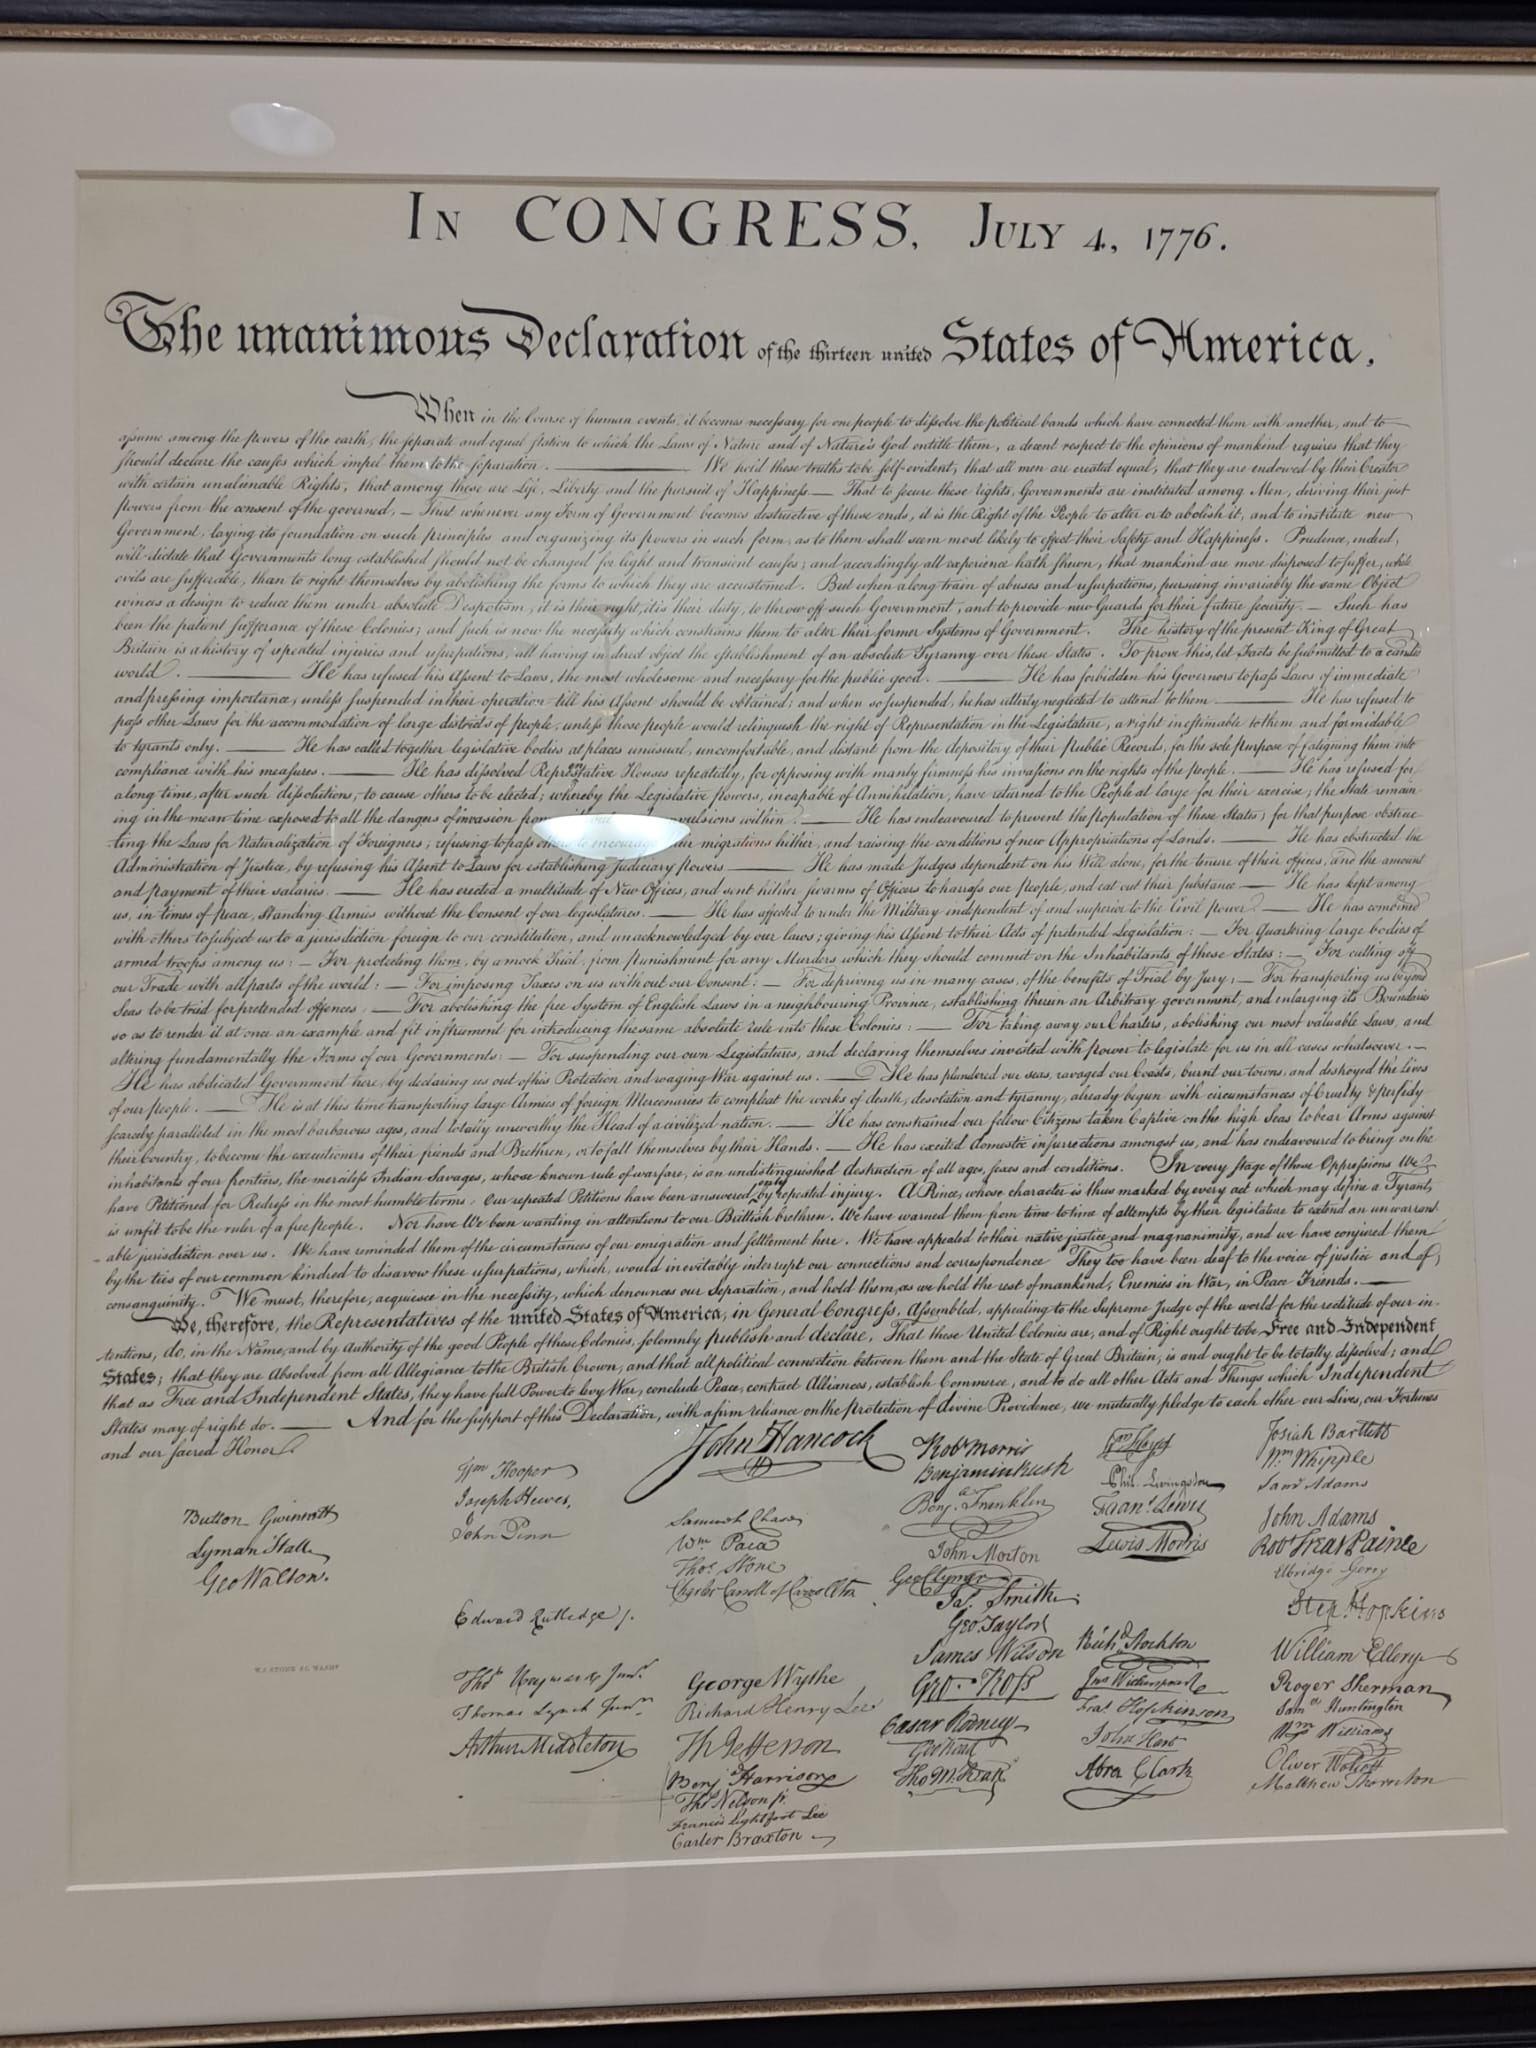 IN CONGRESS, JULY 4, 1776.
The unanimous Declaration of the thirteen united States of America,
When in the Course of human events, it becomes necessary for one people to dissolve the political bands which have connected them with another, and to
assume among the powers of the earth, the separate and equal station to which the Laws of Nature and of Nature's God entitle them, a decent respect to the opinions of mankind requires that they
should declare the causes which impel them to the separation. We hold these truths to be self-evident, that all men are created equal, that they are endowed by their Creator
with certain unalienable Rights, that among these are Life, Liberty and the pursuit of Happiness.— That to secure these rights, Governments are instituted among Men, deriving their just
powers from the consent of the governed, — That whenever any Form of Government becomes destructive of these ends, it is the Right of the People to alter or to abolish it, and to institute new
Government, laying its foundation on such principles and organizing its powers in such form, as to them shall seem most likely to effect their Safety and Happiness. Prudence, indeed,
will dictate that Governments long established should not be changed for light and transient causes; and accordingly all experience hath shewn, that mankind are more disposed to suffer, while
evils are sufferable, than to right themselves by abolishing the forms to which they are accustomed. But when a long train of abuses and usurpations, pursuing invariably the same Object
evinces a design to reduce them under absolute Despotism, it is their right, it is their duty, to throw off such Government, and to provide new Guards for their future security. — Such has
been the patient sufferance of these Colonies; and such is now the necessity which constrains them to alter their former Systems of Government. The history of the present King of Great
Britain is a history of repeated injuries and usurpations, all having in direct object the establishment of an absolute Tyranny over these States. To prove this, let Facts be submitted to a candid
world. — He has refused his Assent to Laws, the most wholesome and necessary for the public good. — He has forbidden his Governors to pass Laws of immediate
and pressing importance, unless suspended in their operation till his Assent should be obtained; and when so suspended, he has utterly neglected to attend to them. — He has refused to
pass other Laws for the accommodation of large districts of people, unless those people would relinquish the right of Representation in the Legislature, a right inestimable to them and formidable
to tyrants only. — He has called together legislative bodies at places unusual, uncomfortable, and distant from the depository of their public Records, for the sole purpose of fatiguing them into
compliance with his measures. — He has dissolved Representative Houses repeatedly, for opposing with manly firmness his invasions on the rights of the people. — He has refused for
a long time, after such dissolutions, to cause others to be elected; whereby the Legislative powers, incapable of Annihilation, have returned to the People at large for their exercise; the State remain-
ing in the mean time exposed to all the dangers of invasion from convulsions within. — He has endeavoured to prevent the population of these States; for that purpose obstruc-
ting the Laws for Naturalization of Foreigners; refusing to pass others to encourage their migrations hither, and raising the conditions of new Appropriations of Lands. — He has obstructed the
Administration of Justice, by refusing his Assent to Laws for establishing Judiciary powers. — He has made Judges dependent on his Will alone, for the tenure of their offices, and the amount
and payment of their salaries. — He has erected a multitude of New Offices, and sent hither swarms of Officers to harrass our people, and eat out their substance. — He has kept among
us, in times of peace, Standing Armies without the Consent of our legislatures. — He has affected to render the Military independent of and superior to the Civil power. — He has combined
with others to subject us to a jurisdiction foreign to our constitution, and unacknowledged by our laws; giving his Assent to their Acts of pretended Legislation: — For Quartering large bodies of
armed troops among us: — For protecting them, by a mock Trial, from punishment for any Murders which they should commit on the Inhabitants of these States: — For cutting off
our Trade with all parts of the world: — For imposing Taxes on us without our Consent: — For depriving us in many cases, of the benefits of Trial by Jury: — For transporting us beyond
Seas to be tried for pretended offences — For abolishing the free System of English Laws in a neighbouring Province, establishing therein an Arbitrary government, and enlarging its Boundaries
so as to render it at once an example and fit instrument for introducing the same absolute rule into these Colonies: — For taking away our Charters, abolishing our most valuable Laws, and
altering fundamentally the Forms of our Governments: — For suspending our own Legislatures, and declaring themselves invested with power to legislate for us in all cases whatsoever. —
He has abdicated Government here, by declaring us out of his Protection and waging War against us. — He has plundered our seas, ravaged our Coasts, burnt our towns, and destroyed the lives
of our people. — He is at this time transporting large Armies of foreign Mercenaries to compleat the works of death, desolation and tyranny, already begun with circumstances of Cruelty & perfidy
scarcely paralleled in the most barbarous ages, and totally unworthy the Head of a civilized nation. — He has constrained our fellow Citizens taken Captive on the high Seas to bear Arms against
their Country, to become the executioners of their friends and Brethren, or to fall themselves by their Hands. — He has excited domestic insurrections amongst us, and has endeavoured to bring on the
inhabitants of our frontiers, the merciless Indian Savages, whose known rule of warfare, is an undistinguished destruction of all ages, sexes and conditions. In every stage of these Oppressions We
have Petitioned for Redress in the most humble terms: Our repeated Petitions have been answered only by repeated injury. A Prince, whose character is thus marked by every act which may define a Tyrant,
is unfit to be the ruler of a free people. Nor have We been wanting in attentions to our Brittish brethren. We have warned them from time to time of attempts by their legislature to extend an unwarrant-
able jurisdiction over us. We have reminded them of the circumstances of our emigration and settlement here. We have appealed to their native justice and magnanimity, and we have conjured them
by the ties of our common kindred to disavow these usurpations, which, would inevitably interrupt our connections and correspondence They too have been deaf to the voice of justice and of
consanguinity. We must, therefore, acquiesce in the necessity, which denounces our Separation, and hold them, as we hold the rest of mankind, Enemies in War, in Peace Friends. —
We, therefore, the Representatives of the united States of America, in General Congress, Assembled, appealing to the Supreme Judge of the world for the rectitude of our in-
tentions, do, in the Name, and by Authority of the good People of these Colonies, solemnly publish and declare, That these United Colonies are, and of Right ought to be Free and Independent
States; that they are Absolved from all Allegiance to the British Crown, and that all political connection between them and the State of Great Britain, is and ought to be totally dissolved; and
that as Free and Independent States, they have full Power to levy War, conclude Peace, contract Alliances, establish Commerce, and to do all other Acts and Things which Independent
States may of right do. — And for the support of this Declaration, with a firm reliance on the protection of divine Providence, we mutually pledge to each other our Lives, our Fortunes
and our sacred Honor.
Button Gwinnett
Lyman Hall
Geo Walton.
W.J. STONE SC. WASHN
Wm Hooper
Joseph Hewes,
John Penn
Edward Rutledge /.
Thos Heyward Junr.
Thomas Lynch Junr.
Arthur Middleton
John Hancock
Samuel Chase
Wm Paca
Thos Stone
Charles Carroll of Carrollton
George Wythe
Richard Henry Lee
Th Jefferson
Benja Harrison
Thos Nelson jr.
Francis Lightfoot Lee
Carter Braxton
Robt Morris
Benjamin Rush
Benja. Franklin
John Morton
Geo Clymer
Jas. Smith
Geo. Taylor
James Wilson
Geo. Ross
Caesar Rodney
Geo Read
Tho M:Kean
Wm Floyd
Phil. Livingston
Frans. Lewis
Lewis Morris
Richd. Stockton
Jno Witherspoon
Fras. Hopkinson
John Hart
Abra Clark
Josiah Bartlett
Wm Whipple
Saml Adams
John Adams
Robt Treat Paine
Elbridge Gerry
Step. Hopkins
William Ellery
Roger Sherman
Samel Huntington
Wm Williams
Oliver Wolcott
Matthew Thornton